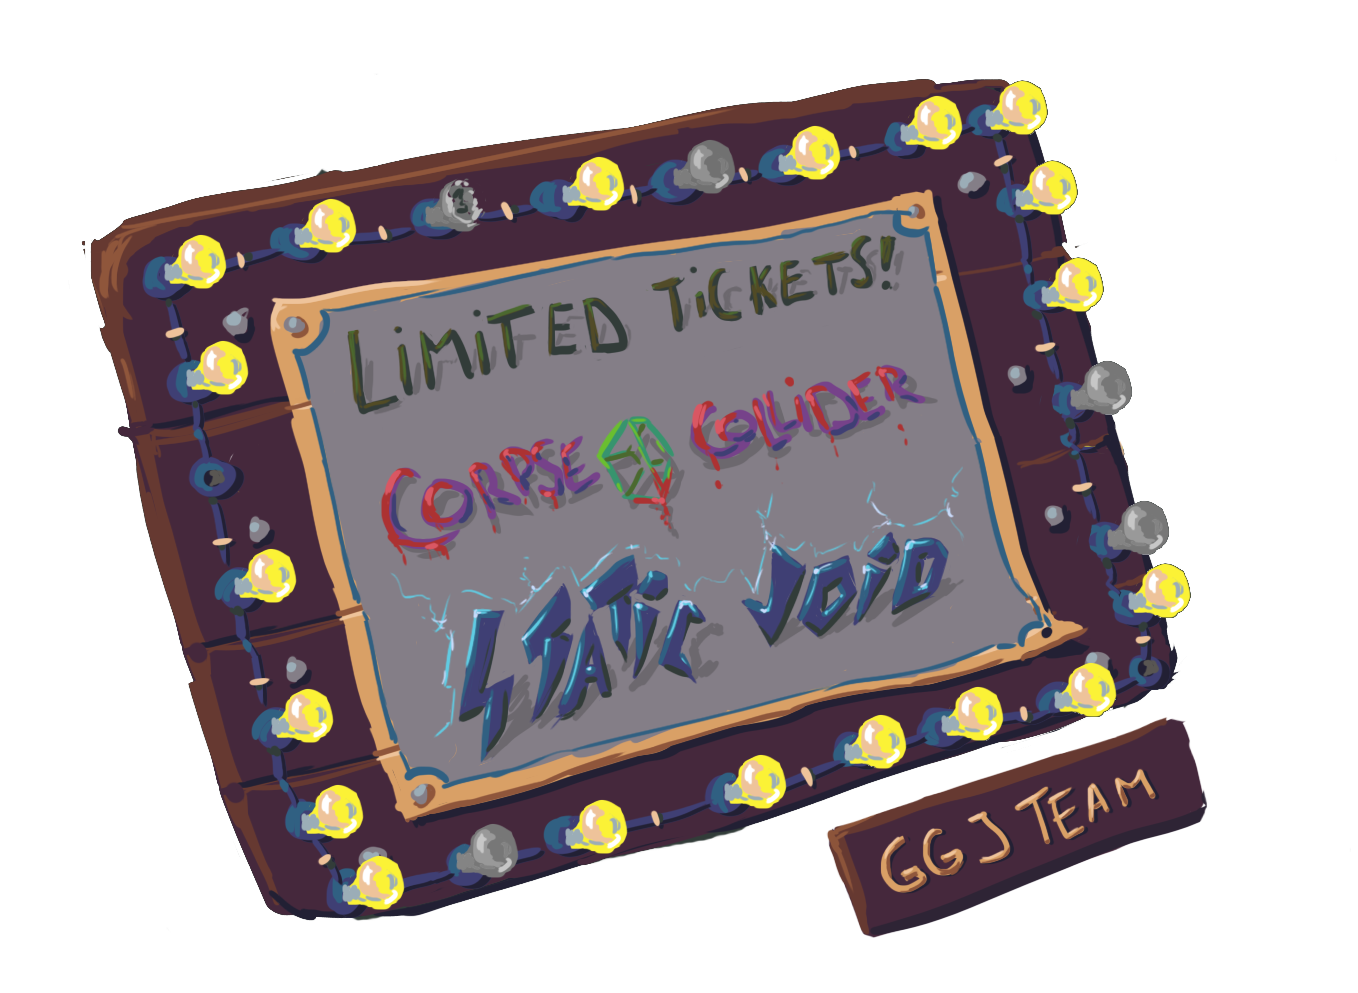 LiMiTED TiCKETS!
CORPSE COLLiDER
STATiC VOiD
GGJ TEAM